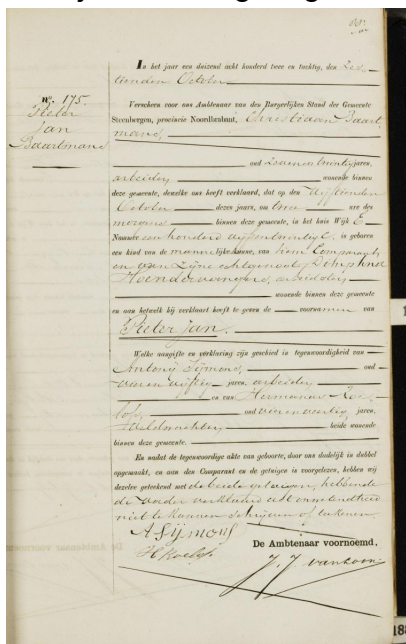 In het jaar een duizend acht honderd twee en tachtig, den Zes-
tienden October
No. 175.
Pieter
Jan
Baartmans
Verscheen voor ons Ambtenaar van den Burgerlijken Stand der Gemeente
Steenbergen, provincie Noordbrabant, Christiaan Baart-
mans,
oud jaren,
arbeider wonende binnen
deze gemeente, dewelke ons heeft verklaard, dat op den Vijftienden
October dezes jaars, om twee ure des
morgens binnen deze gemeente, in het huis Wijk E
Nummer een honderd vijfentwintig, is geboren
een kind van de mannelijke kunne, van hem Comparant
en van zijne echtgenoote Dimphna
arbeidster
wonende binnen deze gemeente
en aan hetwelk hij verklaart heeft te geven de voornamen van
Pieter Jan.
Welke aangifte en verklaring zijn geschied in tegenwoordigheid van
Antonij Sijmons, oud
vier en vijftig jaren, arbeider
en van Hermanus Roe-
lofs, oud vier en veertig jaren,
Veldwachter beide wonende
binnen deze gemeente.
En nadat de tegenwoordige akte van geboorte, door ons dadelijk in dubbel
opgemaakt, en aan den Comparant en de getuigen is voorgelezen, hebben wij
dezelve geteekend met de beide getuigen, hebbende
de vader verklaard uit onwetendheid
niet te kunnen schrijven of teekenen.
A Sijmons
H Roelofs
De Ambtenaar voornoemd,
J. J. van Loon